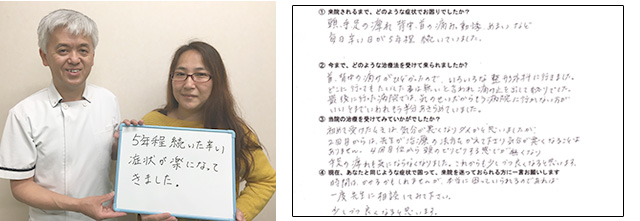 5年程続いた辛い
症状が楽になって
きました。
① 来院されるまで、どのような症状でお困りでしたか?
頭、手足の痺れ 背中、首の痛み、動悸、めまいなど
毎日辛い日が5年程続いていました。
② 今まで、どのような治療法を受けて来られましたか?
首、背中の痛みがひどかったので、いろいろな整形外科に行きました。
どこに行ってもたいした事は無いと言われ 痛み止を出して終わりでした。
最後に行った病院では、気のせいだからもう病院に行かない方が
いいとまでいわれもう半分あきらめていました。
③ 当院の治療を受けてみていかがでしたか?
初めて受けたときは気分が悪くなりダメかもと思いましたが、
2回目からは、先生が治療の仕方をかえて下さり気分が悪くなることは
ありません。4回目位から頭のピリピリする感じが無くなり
手足の痺れも気にならなくなりました。これからも少しづつ良くなると思います。
④ 現在、あなたと同じような症状で困って、来院を迷っておられる方に一言お願いします
時間はかかるかもしれませんが、本当に困っていられるのであれば
一度先生に相談してみて下さい。
少しづつ良くなると思います。